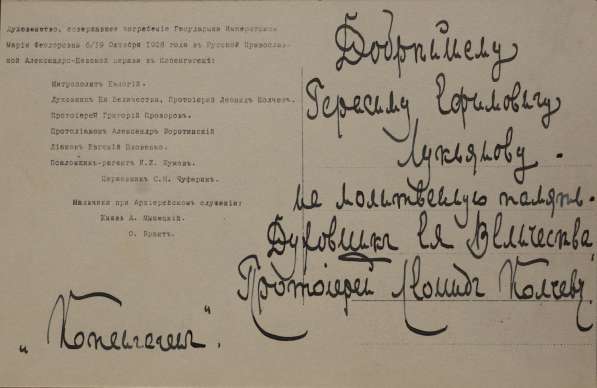 Духовенство, совершавшее погребеніе Государыни Императрицы
Маріи Феодоровны 6/19 Октября 1928 года въ Русской Православ-
ной Александро-Невской церкви въ Копенгагенѣ:
Митрополитъ Евлогій.
Духовникъ Ея Величества, Протоіерей Леонидъ Колчевъ.
Протоіерей Григорій Прозоровъ.
Протодіаконъ Александръ
Діаконъ Евгеній
Псаломщикъ-регентъ
С.Н. Чуферинъ.
Мальчики при Архіерейскомъ служеніи:
Князь А.
О.
Добрѣйшему
Герасиму Ефимовичу
Лукьянову.
на молитвенную память.
Духовникъ Ея Величества,
Протоіерей Леонидъ Колчевъ.
„Копенгагенъ".